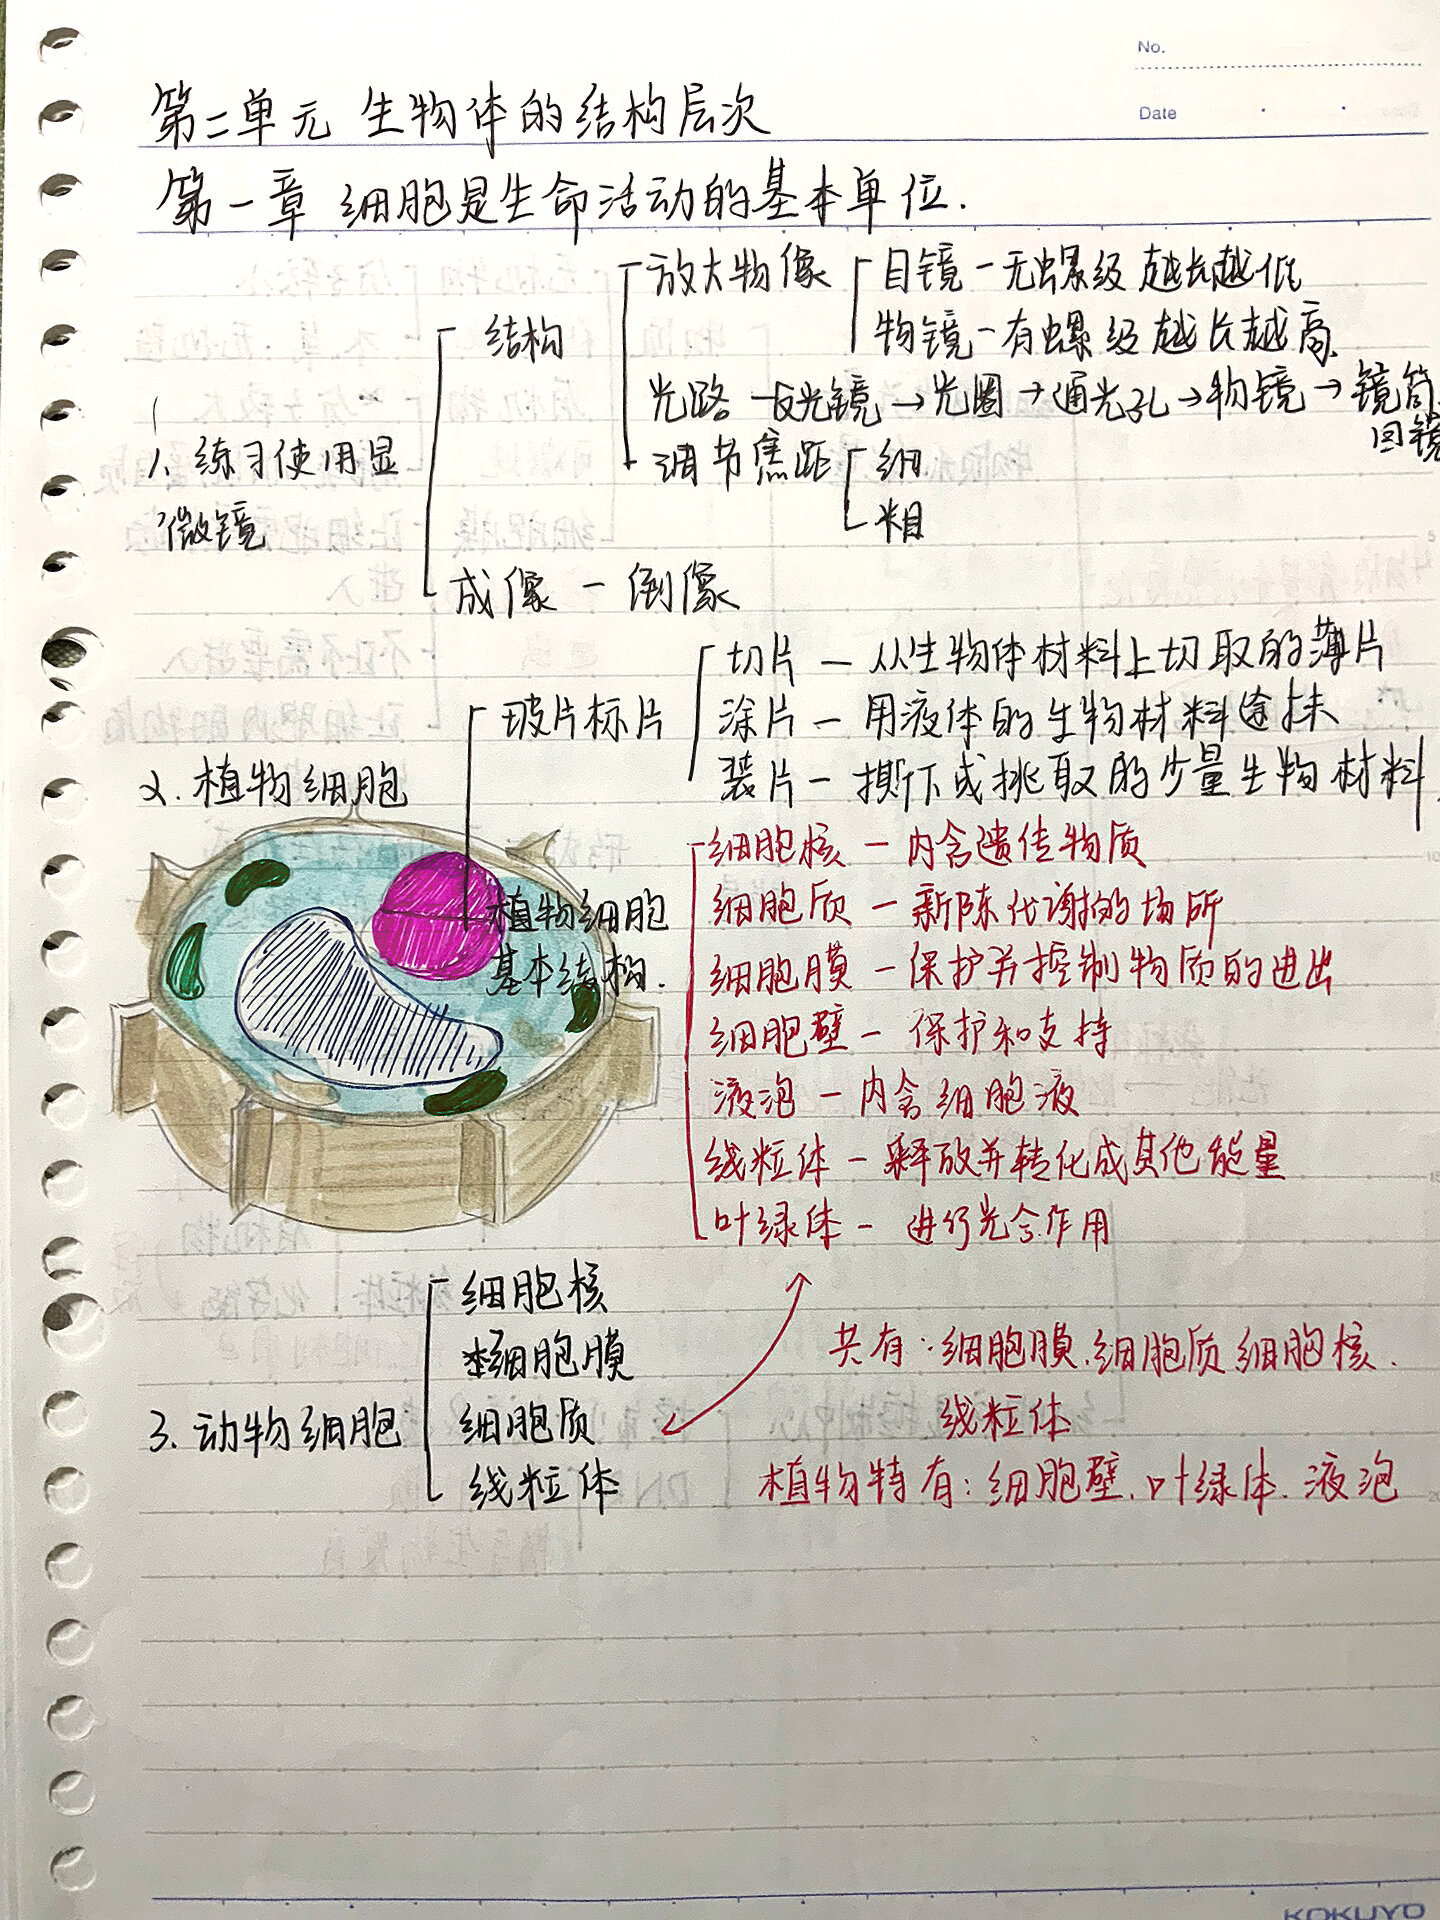 No.
Date
第二单元 生物体的结构层次
第一章 细胞是生命活动的基本单位.
放大物像 目镜－无螺纹 越长越低
结构 物镜－有螺纹 越长越高
光路－反光镜→光圈→通光孔→物镜→镜筒
目镜
1、练习使用显
调节焦距 细
微镜 粗
成像－倒像
切片－从生物体材料上切取的薄片
玻片标片 涂片－用液体的生物材料涂抹
2. 植物细胞 装片－撕下或挑取的少量生物材料
细胞核－内含遗传物质
植物细胞 细胞质－新陈代谢的场所
基本结构. 细胞膜－保护并控制物质的进出
细胞壁－保护和支持
液泡－内含细胞液
线粒体－释放并转化成其他能量
叶绿体－进行光合作用
细胞核
细胞膜 共有:细胞膜.细胞质 细胞核.
3. 动物细胞 细胞质 线粒体
线粒体 植物特有:细胞壁.叶绿体.液泡
KOKUYO